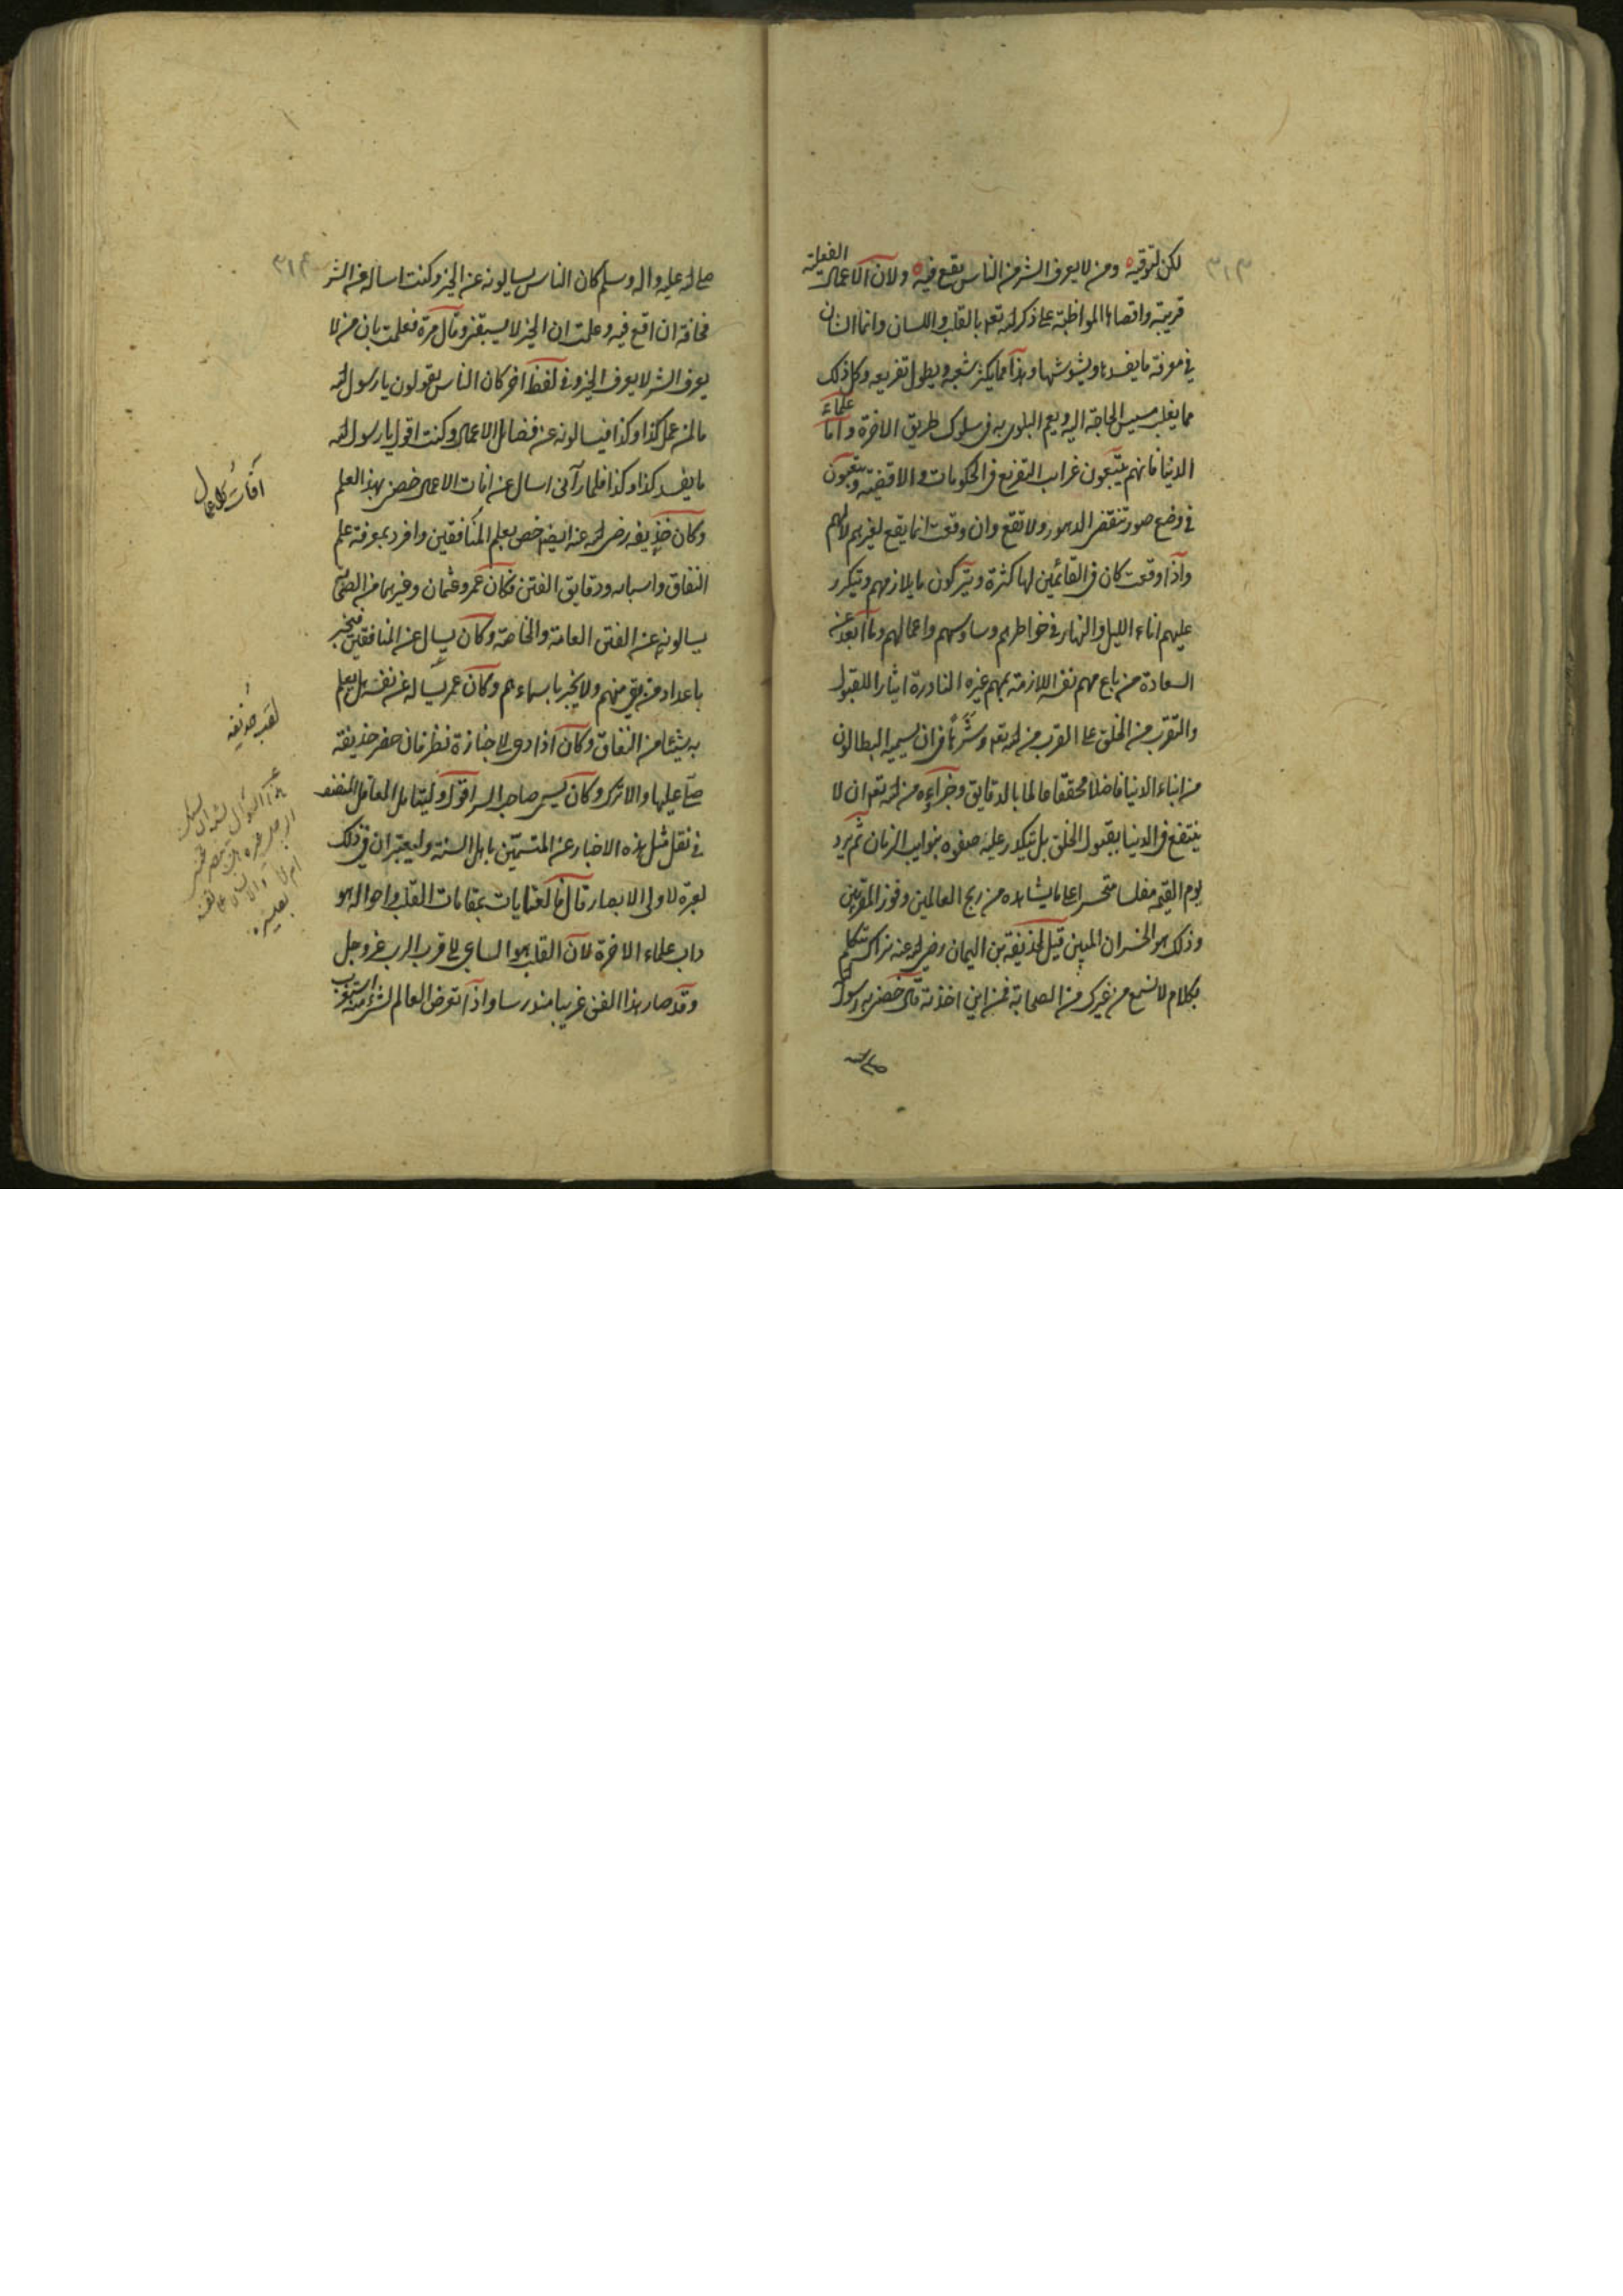 ٣١٣
لكن لتوقيه ومن لا يعرف الشر من الناس يقع فيه ولان الاعمال الفعلية
قريبة واقصاها المواظبة على ذكر الله تعه بالقلب واللسان وانما الشان
في معرفة ما يفسدها ويشوشها وهذا مما يكثر شعبه ويطول تفريعه وكل ذلك
مما يغلب مسيس الحاجة اليه ويعم البلوى به في سلوك طريق الاخرة واما علماء
الدنيا فانهم يتبعون غرايب التفريع في الحكومات والاقضية ويتعبون
في وضع صور تنقضي الدهور ولا تقع وان وقعت انما يقع لغيرهم لا لهم
واذا وقعت كان في القائمين لها كثرة ويتركون ما يلازمهم ويتكرر
عليهم اناء الليل والنهار في خواطرهم وساوسهم واعمالهم وما ابعد عن
السعادة من باع مهم نفسه اللازمة بمهم غيره النادرة ايثارا للقبول
والتقرب من الخلق على القرب من الله تعه وشرها في ان يسميه البطالون
من ابناء الدنيا فاضلا محققا عالما بالدقايق وجزاءه من الله تعه ان لا
ينتفع في الدنيا بقبول الخلق بل يتكدر عليه صفوه بنوايب الزمان ثم يرد
يوم القيمة مفلسا متحسرا على ما يشاهده من ربح العالمين وفوز المقربين
وذلك هو الخسران المبين قيل لحذيفة بن اليمان رضي الله عنه نراك تتكلم
بكلام لا نسمع من غيرك من الصحابة فمن اين اخذته قال خصني به رسول الله
صلى
٣١٤
صلى الله عليه واله وسلم كان الناس يسالونه عن الخير وكنت اساله عن الشر
مخافة ان اقع فيه وعلمت ان الخير لا يسبقني وقال مرة فعلمت بان من لا
يعرف الشر لا يعرف الخير وفي لفظ اخر كان الناس يقولون يا رسول الله
ما لمن عمل كذا وكذا فيسالونه عن فضائل الاعمال وكنت اقول يا رسول الله
ما يفسد كذا وكذا فلما رآني اسال عن افات الاعمال خصني بهذا العلم
وكان حذيفه رضي الله عنه ايضا خص بعلم المنافقين وافرد بمعرفة علم
النفاق واسبابه ودقايق الفتن فكان عمر وعثمان وغيرهما من الصحابة
يسالونه عن الفتن العامة والخاصة وكان يسال عن المنافقين فيخبر
باعداد من بقي منهم ولا يخبر باسماءهم وكان عمر يساله عن نفسه هل يعلم
به شيئا من النفاق وكان اذا دعي الى جنازة نظر فان حضر حذيفة
صلى عليها والا ترك وكان يسمى صاحب السر اقول وليتامل العاقل المنصف
في نقل مثل هذه الاخبار عن المتسمين باهل السنة وليعتبر ان في ذلك
لعبرة لاولي الابصار قال فالعنايات بمقامات القلب واحواله هو
داب علماء الاخرة لان القلب هو الساعي الى قرب الرب عز وجل
وقد صار هذا الفن غريبا مندرسا واذا تعرض العالم لشيء منه استغرب
آفات كل عمل
لقب حذيفه